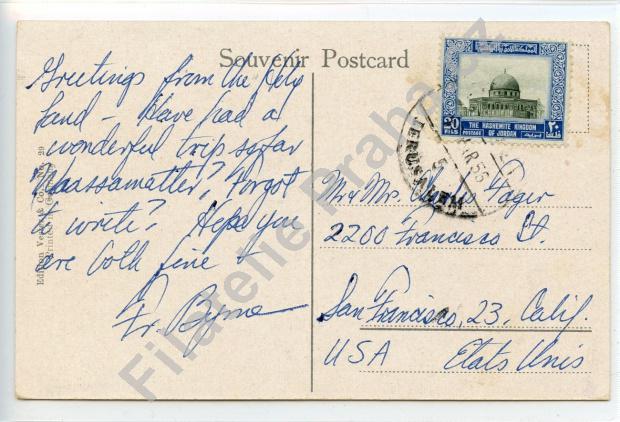 Souvenir Postcard
Greetings from the Holy
Land - Have had a
wonderful trip so far
Waassamatter? Forgot
to write? Hope you
are both fine &
Fr. Byrne
20
FILS
POSTAGE
THE HASHEMITE KINGDOM
OF JORDAN
٢٠
JERUSALEM
5
56
Mr & Mrs. Charles Pager
2200 Francisco St.
San Francisco, 23, Calif.
USA Etats Unis
29
Filatelie Praha.cz